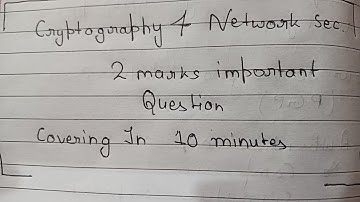 Cryptography & Network Sec.
2 marks important
Question
Covering In 10 minutes